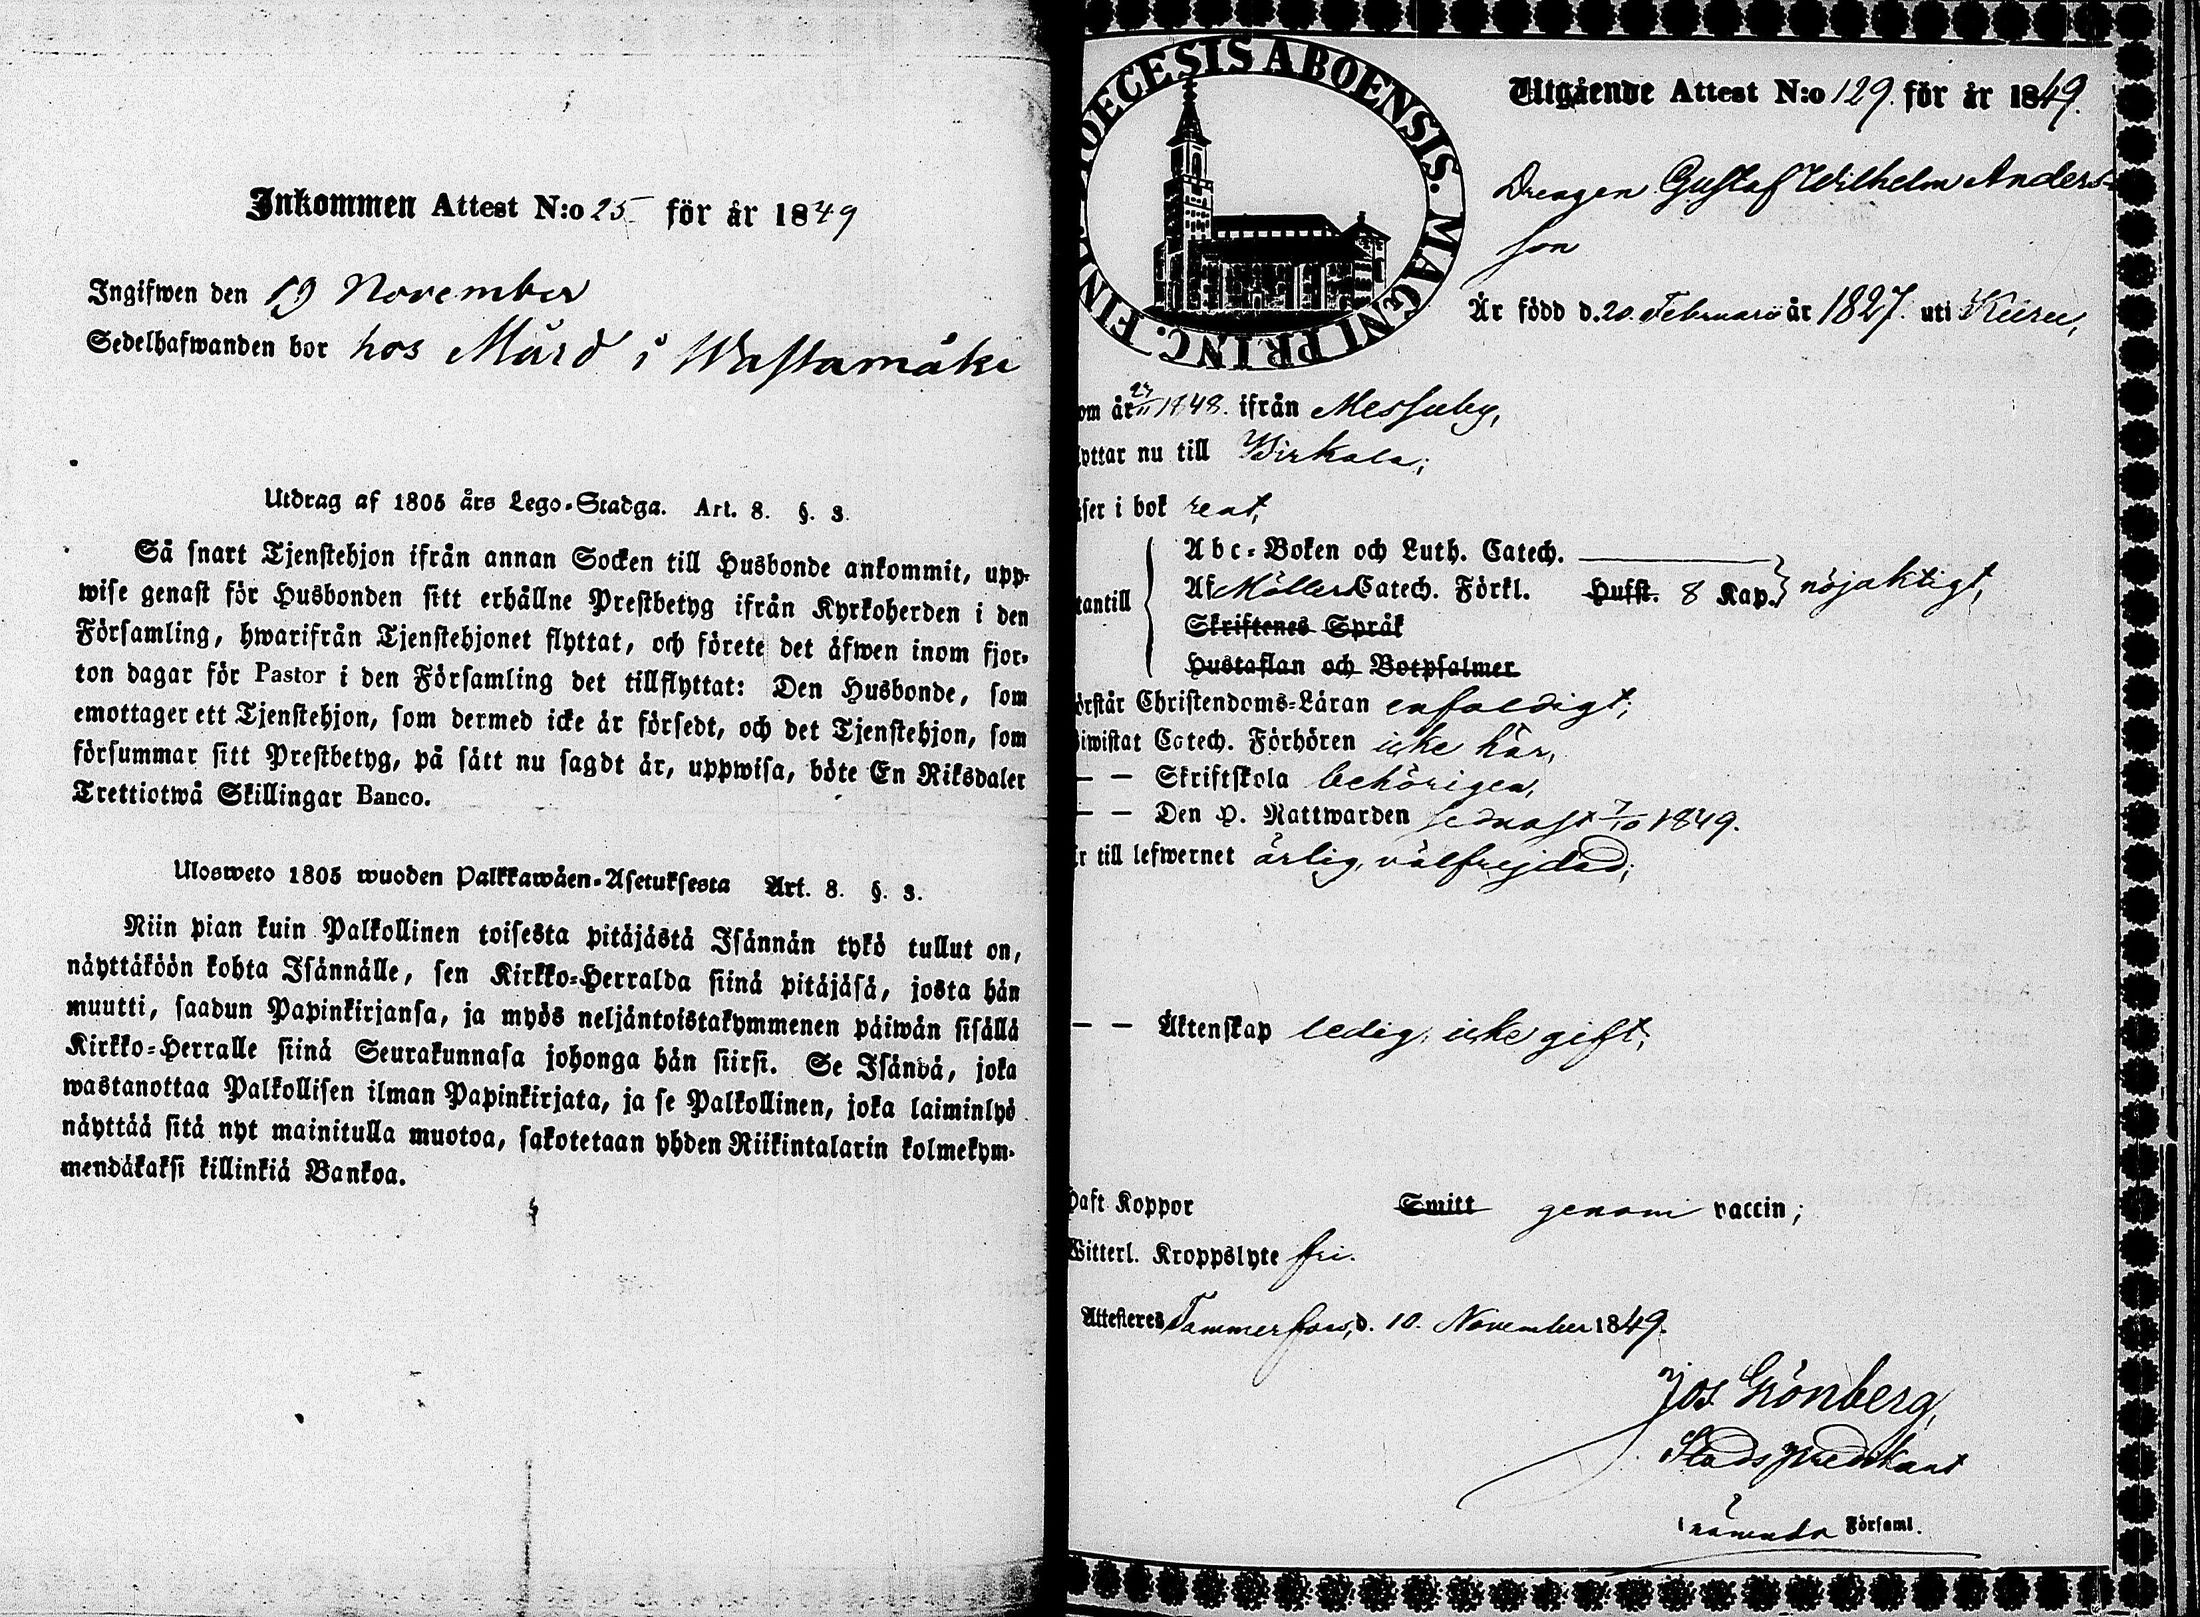 Inkommen Attest N:o 25 för år 1849
Ingifwen den 19 November
Sedelhafwanden bor hos Mård i Wastamäki
Utdrag af 1805 års Lego-Stadga. Art. 8. §. 3.
Så snart Tjenstehjon ifrån annan Socken till Husbonde ankommit, upp-
wise genast för Husbonden sitt erhållne Prestbetyg ifrån Kyrkoherden i den
Församling, hwarifrån Tjenstehjonet flyttat, och förete det äfwen inom fjor-
ton dagar för Pastor i den Församling det tillflyttat: Den Husbonde, som
emottager ett Tjenstehjon, som dermed icke är försedt, och det Tjenstehjon, som
försummar sitt Prestbetyg, på sätt nu sagdt är, uppwisa, böte En Riksdaler
Trettiotwå Skillingar Banco.
Ulosweto 1805 wuoden Palkkawäen-Asetuksesta Art. 8. §. 3.
Niin pian kuin Palkollinen toisesta pitäjästä Isännän tykö tullut on,
näyttäköön kohta Isännälle, sen Kirkko-Herralda siinä pitäjäsä, josta hän
muutti, saadun Papinkirjansa, ja myös neljäntoistakymmenen päiwän sisällä
Kirkko-Herralle siinä Seurakunnasa johonga hän siirsi. Se Isändä, joka
wastanottaa Palkollisen ilman Papinkirjata, ja se Palkollinen, joka laiminlyö
näyttää sitä nyt mainitulla muotoa, sakotetaan yhden Riikintalarin kolmekym-
mendäkaksi killinkiä Bankoa.
DIOECESIS ABOENSIS. MAGNI PRINC. FINL.
Utgående Attest N:o 129. för år 1849.
Drengen Gustaf Wilhelm Anders-
son
Är född d. 20. Februari år 1827. uti Kuru,
om år 27/11 1848. ifrån Messuby,
yttar nu till Birkala;
äser i bok rent,
Abc-Boken och Luth. Catech.
utantill Af Möllers Catech. Förkl. Hufst. 8 Kap. nöjaktigt,
Skriftenes Språk
Hustaflan och Botpsalmer
örstår Christendoms-Läran enfaldigt;
iwistat Catech. Förhören icke här,
— — Skriftskola behörigen,
— — Den H. Nattwarden sednast 7/10 1849.
r till lefwernet ärlig, välfrejdad;
— — Äktenskap ledig, icke gift;
Haft Koppor Smitt genom vaccin;
Witterl. Kroppslyte fri.
Attesteres Tammerfors, d. 10. November 1849.
Jos Grönberg,
Stadspredikant
i nämnda Församl.